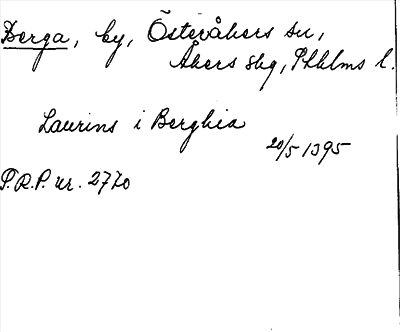 Berga, by, Österåkers sn,
Åkers skg, Sthlms l.
Laurins i Berghia
20/5 1395
P.R.P. nr. 2770